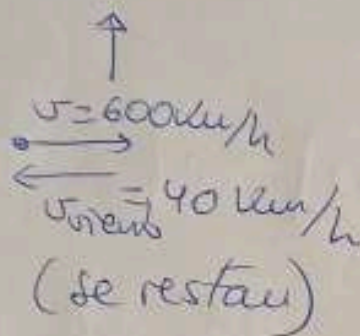 v = 600 Km/h
v viento = 40 Km/h
(se restan)